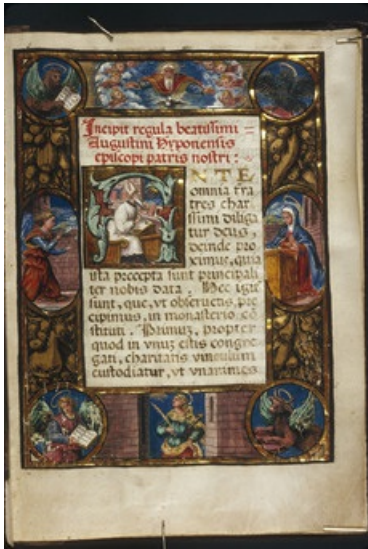 Incipit regula beatissimi
Augustini Hyponensis
episcopi patris nostri :
ANTE
omnia fra
tres char
issimi diliga
tur deus,
deinde pro
ximus, quia
ista precepta sunt principali
ter nobis data . Hec igit
sunt, que, vt obseruetis, pre
cipimus, in monasterio cō
stituti . Primuz, propter
quod in vnuz estis congre
gati, charitatis vinculum
custodiatur, vt vnanimes